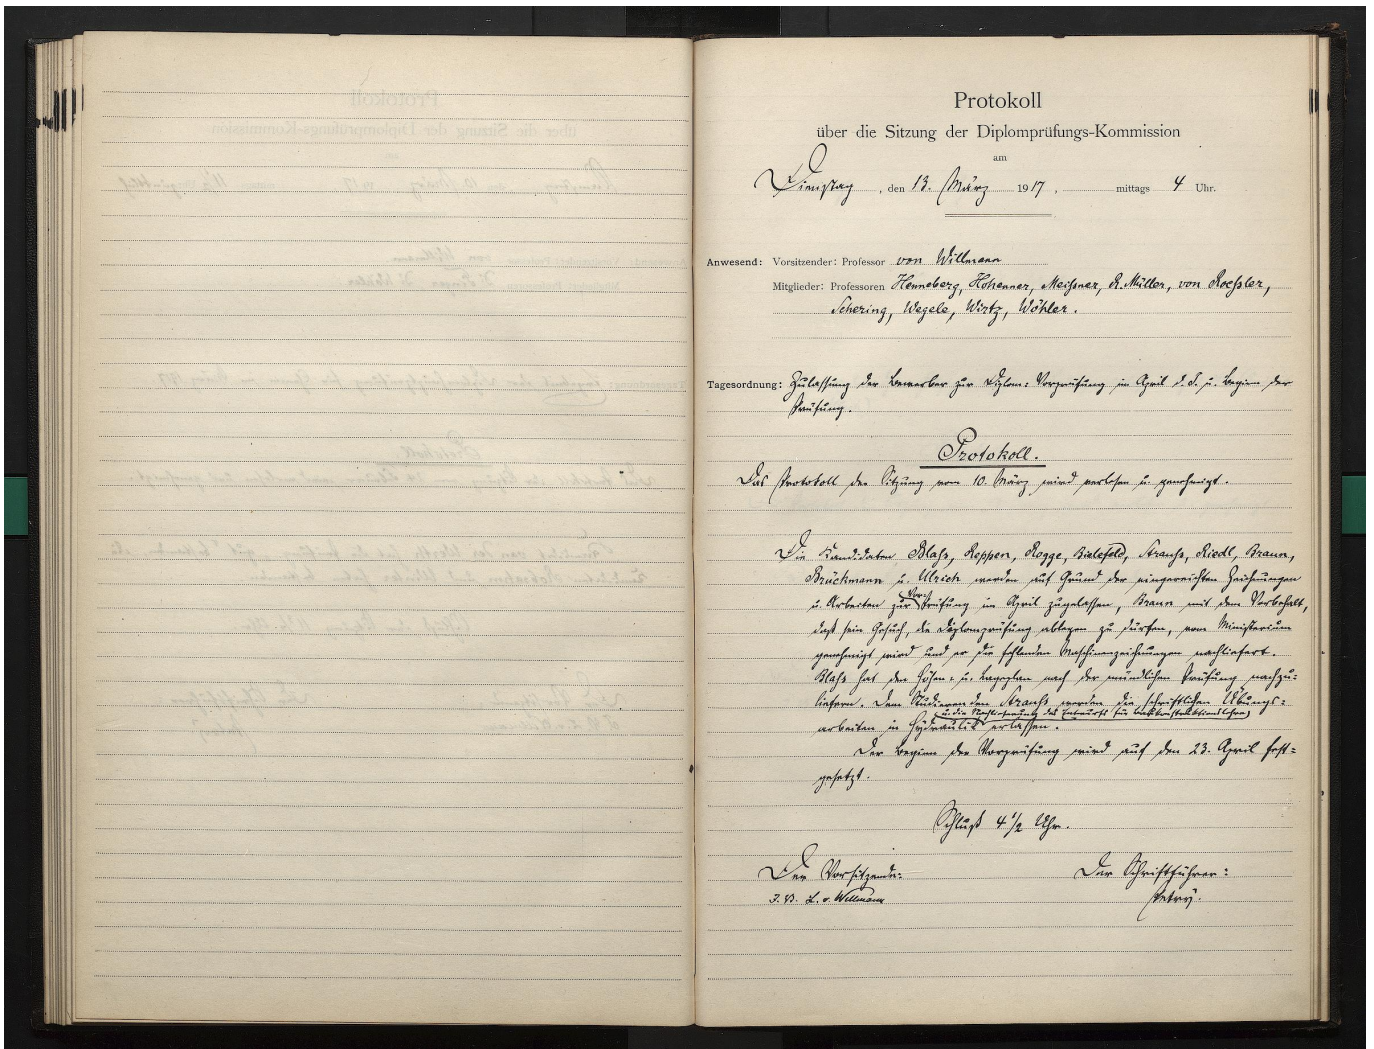 Protokoll
über die Sitzung der Diplomprüfungs-Kommission
am
Dienstag, den 13. März 1917, mittags 4 Uhr.
Anwesend: Vorsitzender: Professor von Willmann
Mitglieder: Professoren Henneberg, Hohenner, Meißner, R. Müller, von Roeßler,
Schering, Wegele, Wirtz, Wöhler.
Tagesordnung: Zulassung der Bewerber zur Diplom-Vorprüfung im April d. J. u. Beginn der
Prüfung.
Protokoll.
Das Protokoll der Sitzung vom 10. März wird verlesen u. genehmigt.
Die Kandidaten Blaß, Reppen, Rogge, Bielefeld, Strauß, Riedl, Braun,
Brückmann u. Ulrich werden auf Grund der eingereichten Zeichnungen
u. Arbeiten zur Vorprüfung im April zugelassen, Braun mit dem Vorbehalt,
daß sein Gesuch, die Diplomprüfung ablegen zu dürfen, vom Ministerium
genehmigt wird und er die fehlenden Maschinenzeichnungen nachliefert.
Blaß hat den Höhen- u. Lageplan nach der mündlichen Prüfung nachzu-
liefern. Dem Studierenden Strauß werden die schriftlichen Übungs-
u. die Nachlieferung des Entwurfs für Baukonstruktionslehre
arbeiten in Hydraulik erlassen.
Der Beginn der Vorprüfung wird auf den 23. April fest-
gesetzt.
Schluß 4 1/2 Uhr.
Der Vorsitzende:
I. V. L. v. Willmann
Der Schriftführer:
Petry.